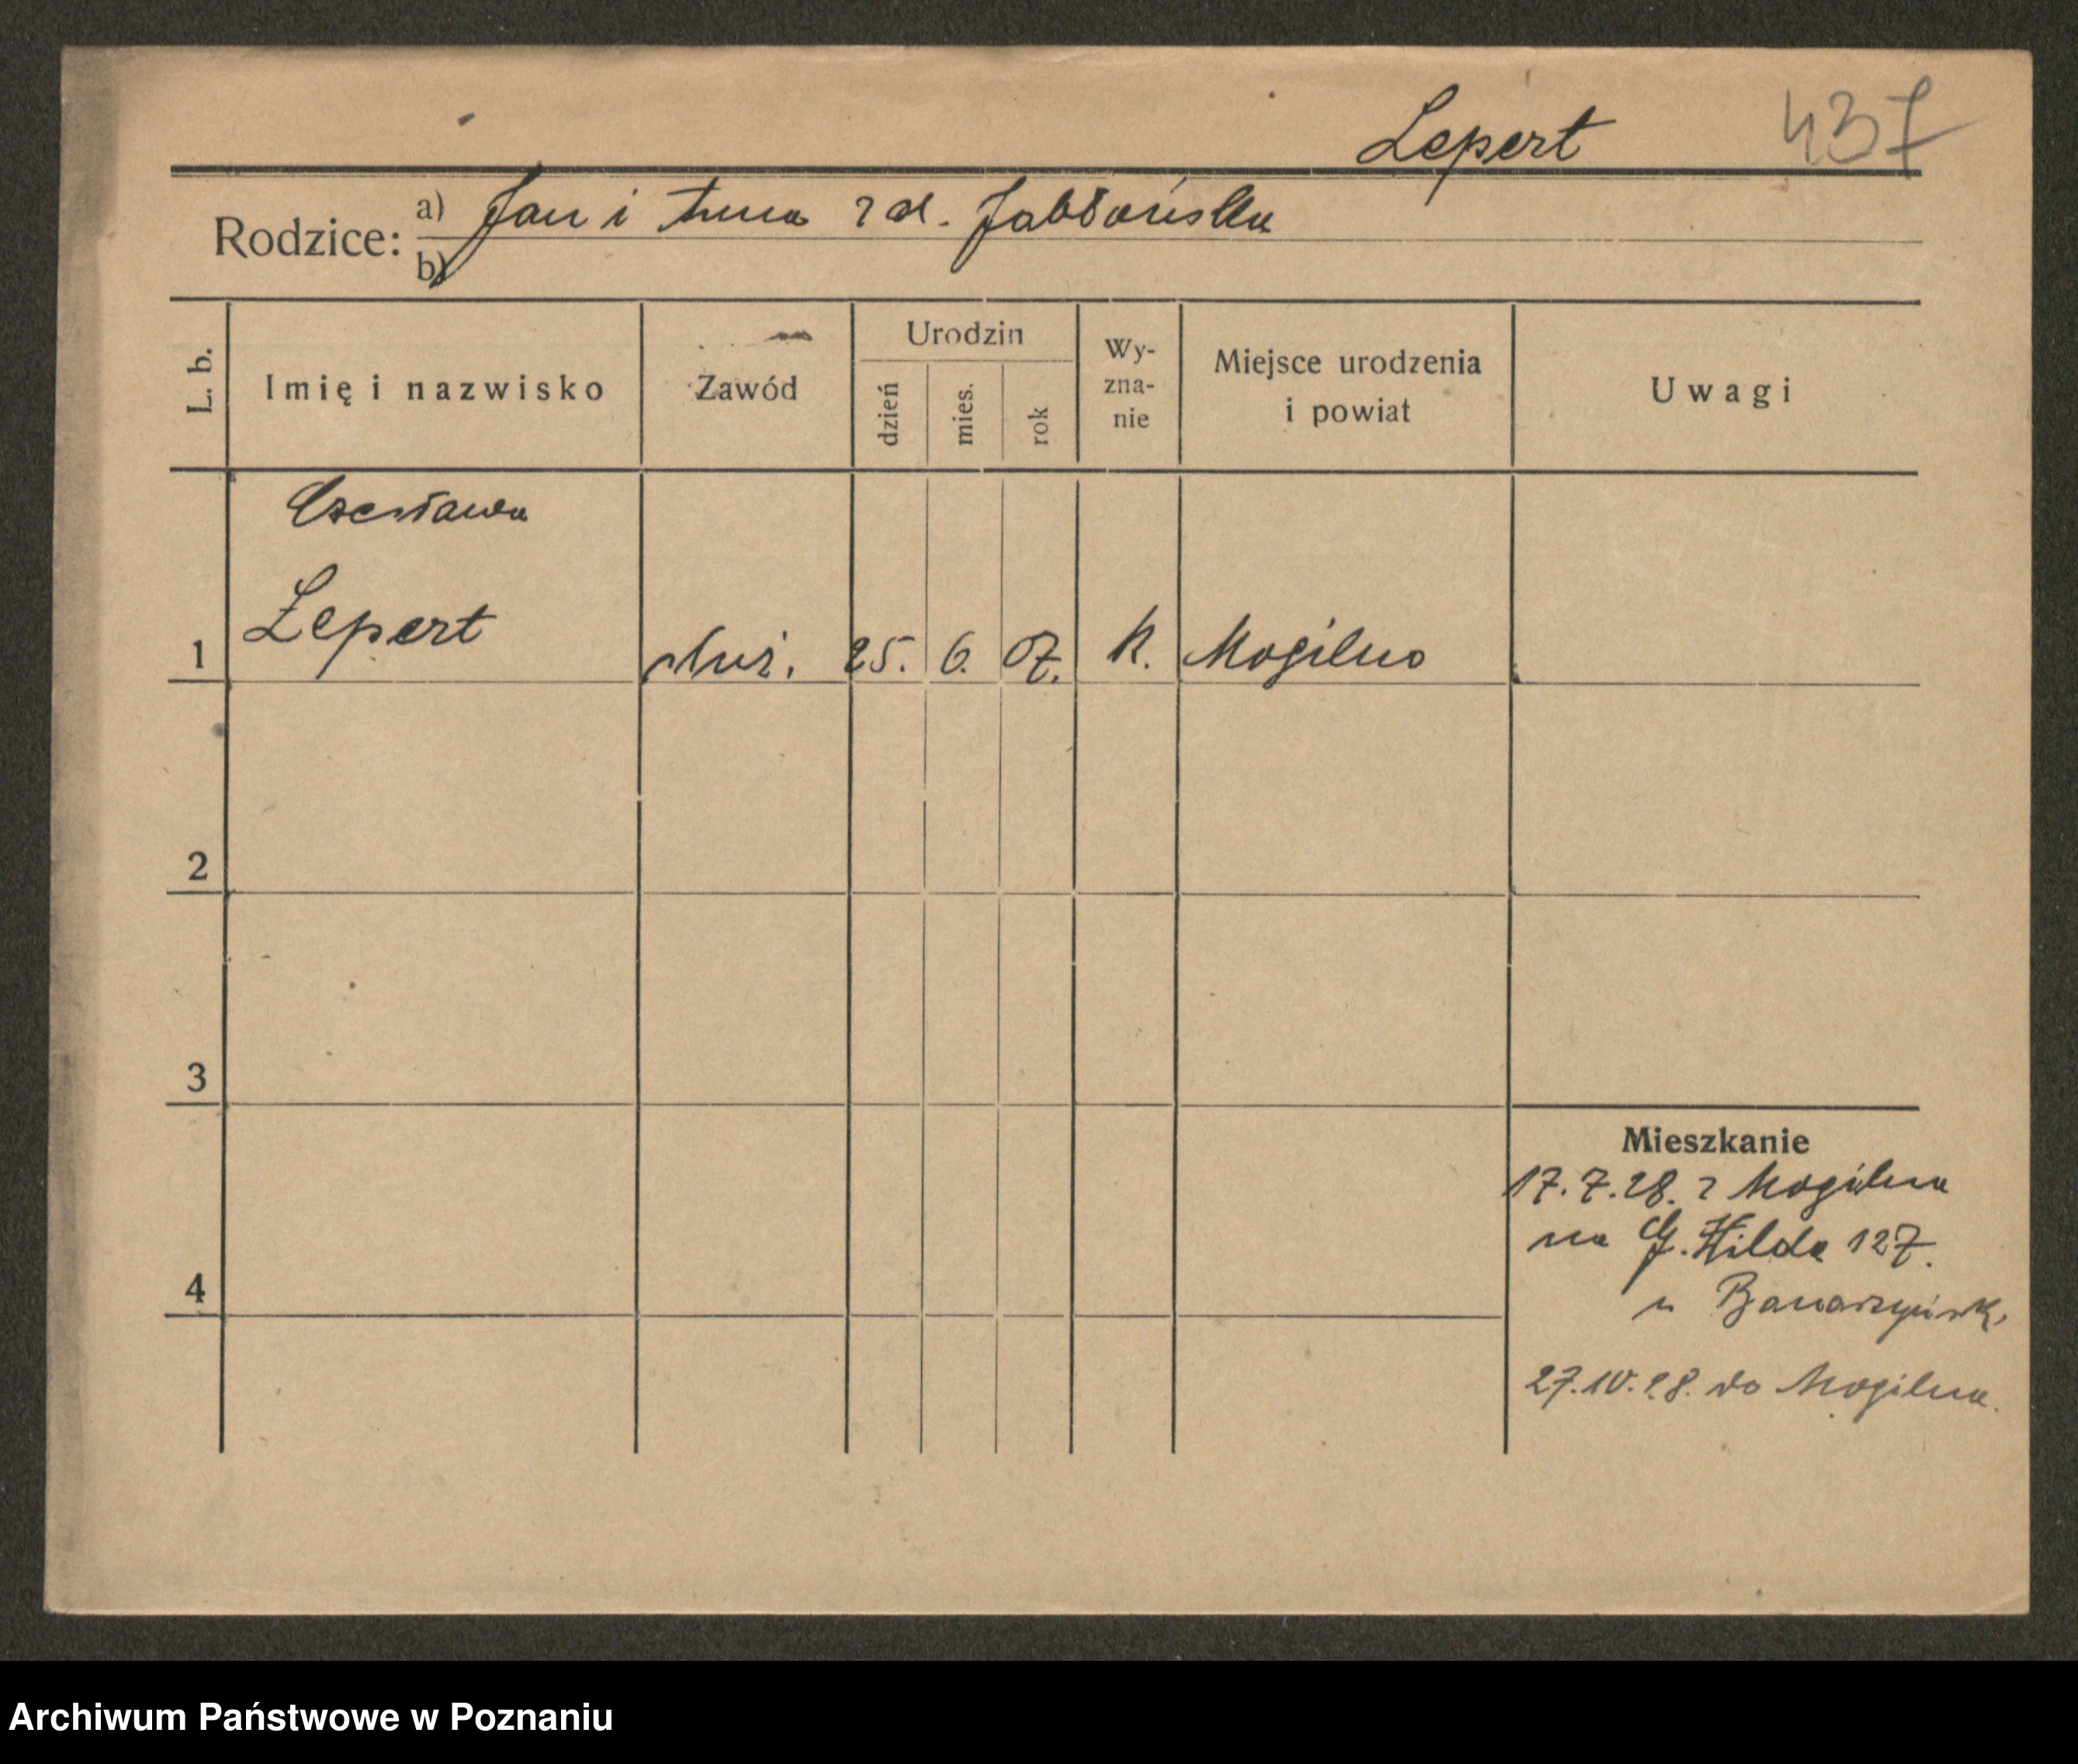 Lepert 437
Rodzice: a) Jan i Anna z d. Jabłońska
b)
L. b. Imię i nazwisko Zawód Urodzin dzień mies. rok Wy-zna-nie Miejsce urodzenia i powiat Uwagi
Czesława
1 Lepert służ. 25. 6. 07. K. Mogilno
2
3
Mieszkanie
17.7.28. z Mogilna
na G. Wilda 127.
4
u
27.IV.28. do Mogilna.
Archiwum Państwowe w Poznaniu